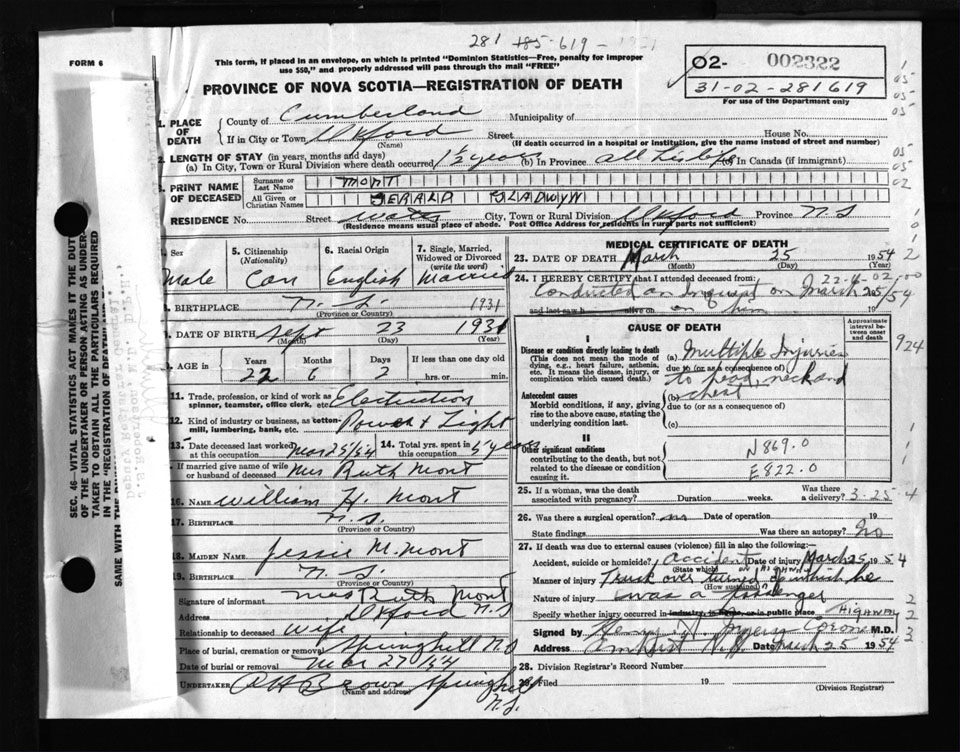 281 185-619-
FORM 6
This form, if placed in an envelope, on which is printed "Dominion Statistics—Free, penalty for improper
use $50," and properly addressed will pass through the mail "FREE"
PROVINCE OF NOVA SCOTIA—REGISTRATION OF DEATH
02- 002322
31-02-281619
For use of the Department only
1. PLACE OF DEATH
County of Cumberland Municipality of
If in City or Town Oxford Street House No.
(Name) (If death occurred in a hospital or institution, give the name instead of street and number)
2. LENGTH OF STAY (in years, months and days)
(a) In City, Town or Rural Division where death occurred 1½ years (b) In Province all his life (c) In Canada (if immigrant)
3. PRINT NAME OF DECEASED
Surname or Last Name MONT
All Given or Christian Names GERALD GLADWYN
RESIDENCE No. Street Water City, Town or Rural Division Oxford Province N S
(Residence means usual place of abode. Post Office Address for residents in rural parts not sufficient)
4. Sex Male
5. Citizenship (Nationality) Can
6. Racial Origin English
7. Single, Married, Widowed or Divorced (write the word) Married
8. BIRTHPLACE N. S. 1931
(Province or Country)
9. DATE OF BIRTH Sept 23 1931
(Month) (Day) (Year)
10. AGE in Years Months Days If less than one day old
22 6 2 hrs. or min.
11. Trade, profession, or kind of work as spinner, teamster, office clerk, etc. Electrician
12. Kind of industry or business, as cotton-mill, lumbering, bank, etc. Power & Light
13. Date deceased last worked at this occupation Mar 25/54
14. Total yrs. spent in this occupation 5 years
15. If married give name of wife or husband of deceased Mrs Ruth Mont
16. NAME William H. Mont
17. BIRTHPLACE N. S.
(Province or Country)
18. MAIDEN NAME Jessie M. Mont
19. BIRTHPLACE N. S.
(Province or Country)
Signature of informant Mrs Ruth Mont
Address Oxford N S
Relationship to deceased Wife
Place of burial, cremation or removal Springhill N S
Date of burial or removal Mar 27/54
UNDERTAKER A H Brown Springhill N. S.
(Name and address)
MEDICAL CERTIFICATE OF DEATH
23. DATE OF DEATH March 25 1954
(Month) (Day) (Year)
24. I HEREBY CERTIFY that I attended deceased from:
Conducted an Inquest on March 25/54
and last saw h alive on on him 19
CAUSE OF DEATH
Approximate interval between onset and death
I
Disease or condition directly leading to death
(This does not mean the mode of dying, e.g., heart failure, asthenia, etc. It means the disease, injury, or complication which caused death.)
(a) Multiple Injuries
due to (or as a consequence of)
to head, neck and
(b) chest
due to (or as a consequence of)
(c)
Antecedent causes
Morbid conditions, if any, giving rise to the above cause, stating the underlying condition last.
II
Other significant conditions contributing to the death, but not related to the disease or condition causing it.
N869.0
E822.0
924
25. If a woman, was the death associated with pregnancy? Duration weeks. Was there a delivery? 3-25-4
26. Was there a surgical operation? no Date of operation 19
State findings Was there an autopsy? No
27. If death was due to external causes (violence) fill in also the following:—
Accident, suicide or homicide? Accident Date of injury March 25 1954
(State which)
Manner of injury Truck over turned of which he
(How sustained)
Nature of injury was a passenger
Specify whether injury occurred in industry, in home, or in public place HIGHWAY
Signed by Coroner M.D.
Address Amherst N.S. Date March 25 1954
28. Division Registrar's Record Number
29. Filed 19
(Division Registrar)
SEC. 46—VITAL STATISTICS ACT MAKES IT THE DUTY
OF THE UNDERTAKER OR PERSON ACTING AS UNDER-
TAKER TO OBTAIN ALL THE PARTICULARS REQUIRED
IN THE "REGISTRATION OF DEATH
SAME WITH THE
Deputy Registrar General